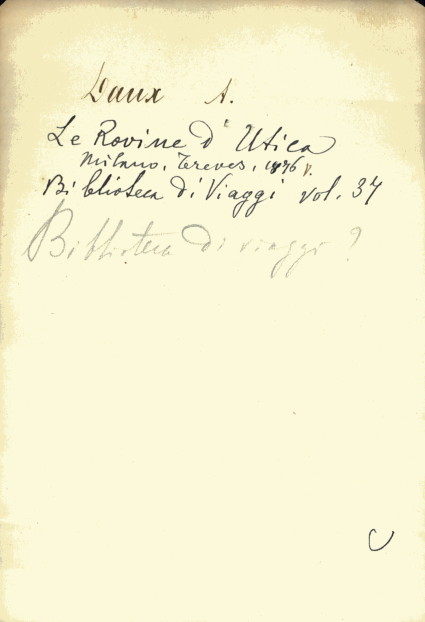 Daux A.
Le Rovine d' Utica
Milano, Treves, 1876
Biblioteca di Viaggi vol. 37
Biblioteca di viaggi ?